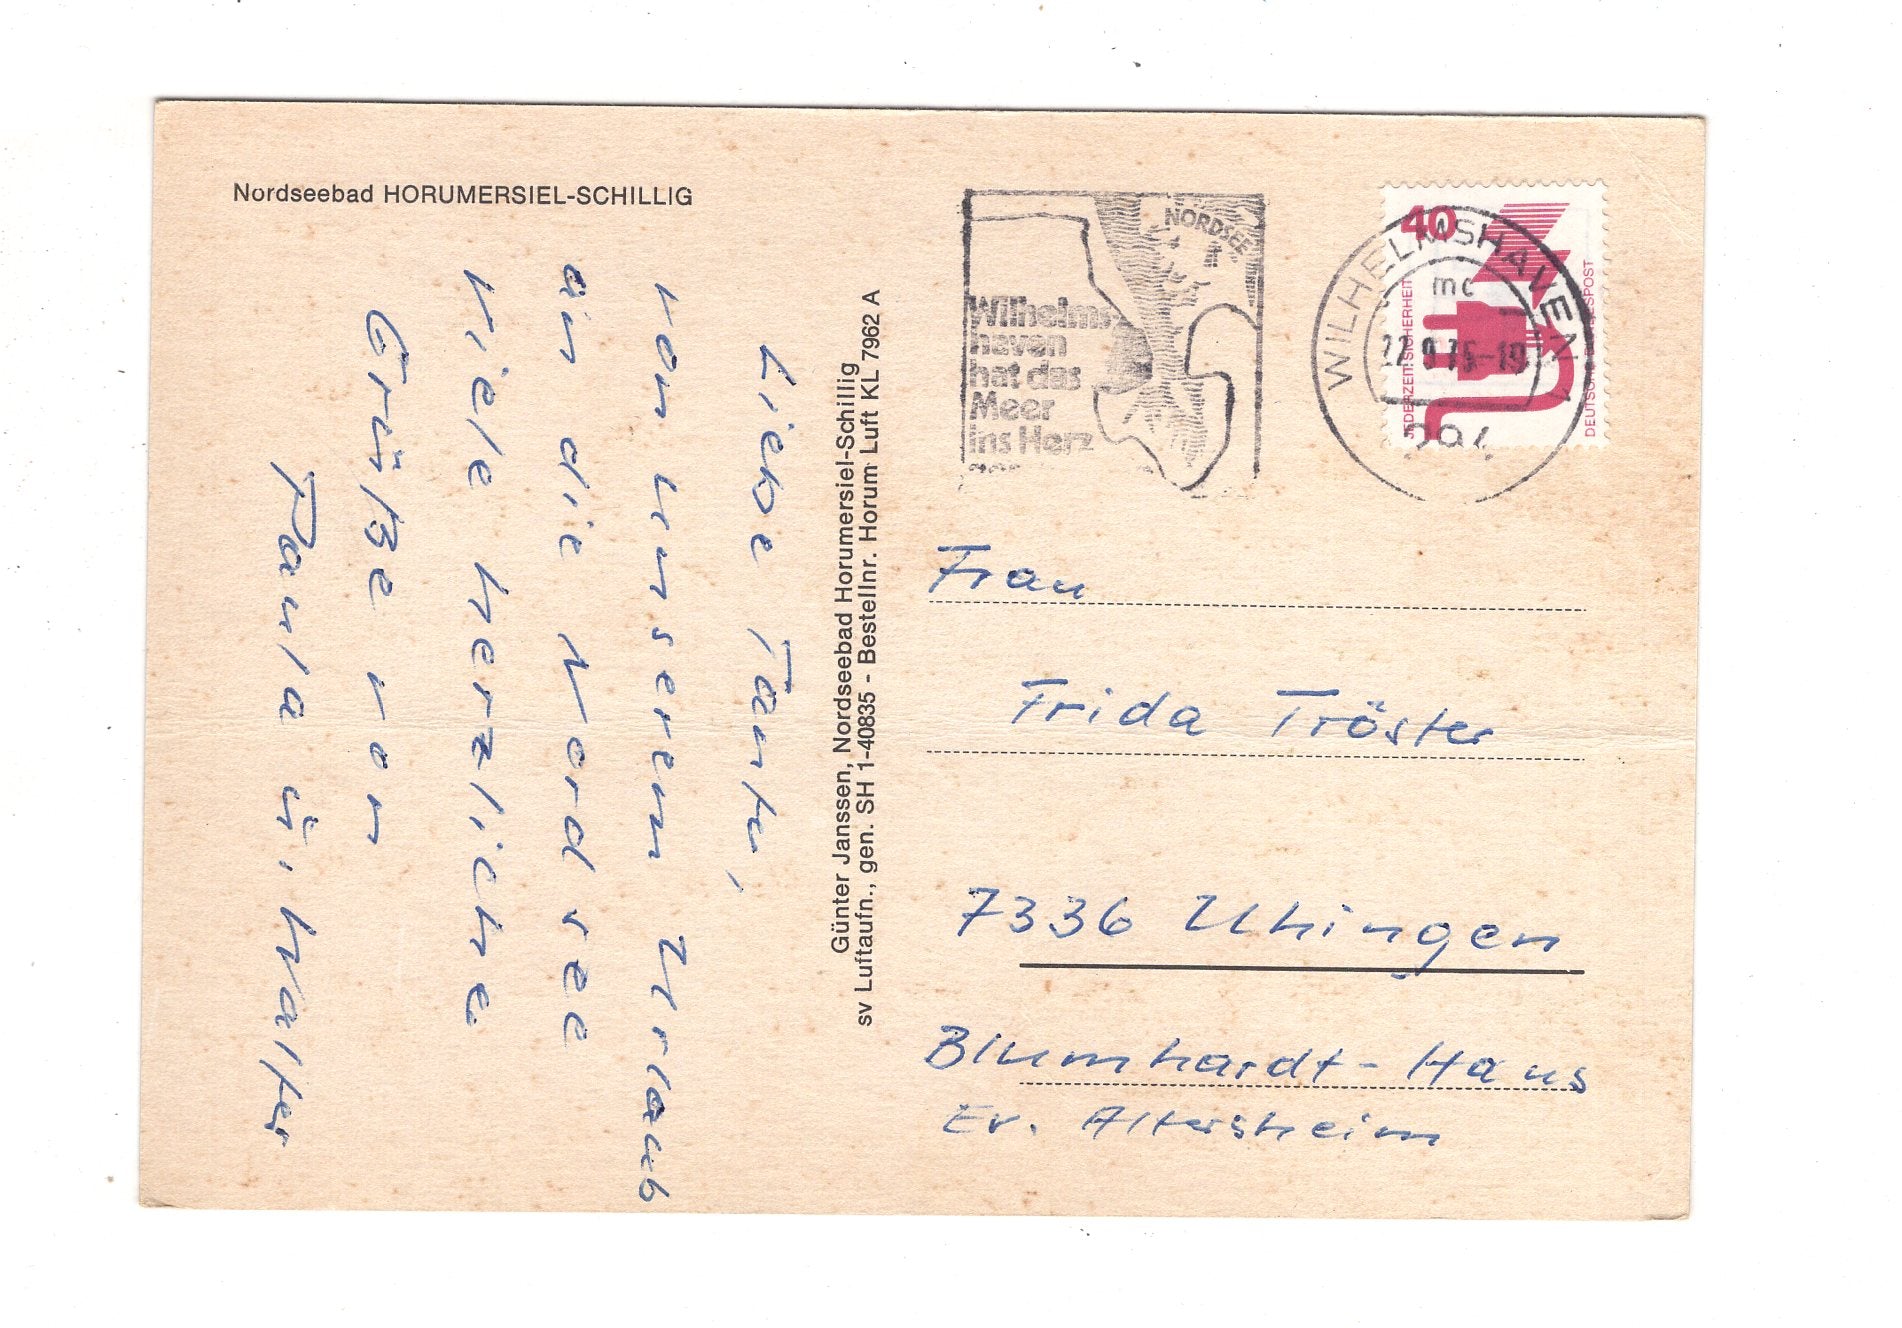 Nordseebad HORUMERSIEL-SCHILLIG
Liebe Tante,
von unserem Urlaub
an die Nordsee
viele herzliche
Grüße von
Paula u. Walter
Günter Janssen, Nordseebad Horumersiel-Schillig
sv Luftaufn., gen. SH 1-40835 - Bestellnr. Horum Luft KL 7962 A
NORDSEE
Wilhelms-
haven
hat das
Meer
ins Herz
WILHELMSHAVEN 1
mc
-19
294
40
JEDERZEIT SICHERHEIT
DEUTSCHE BUNDESPOST
Frau
Frida Tröster
7336 Uhingen
Blumhardt-Haus
Ev. Altersheim